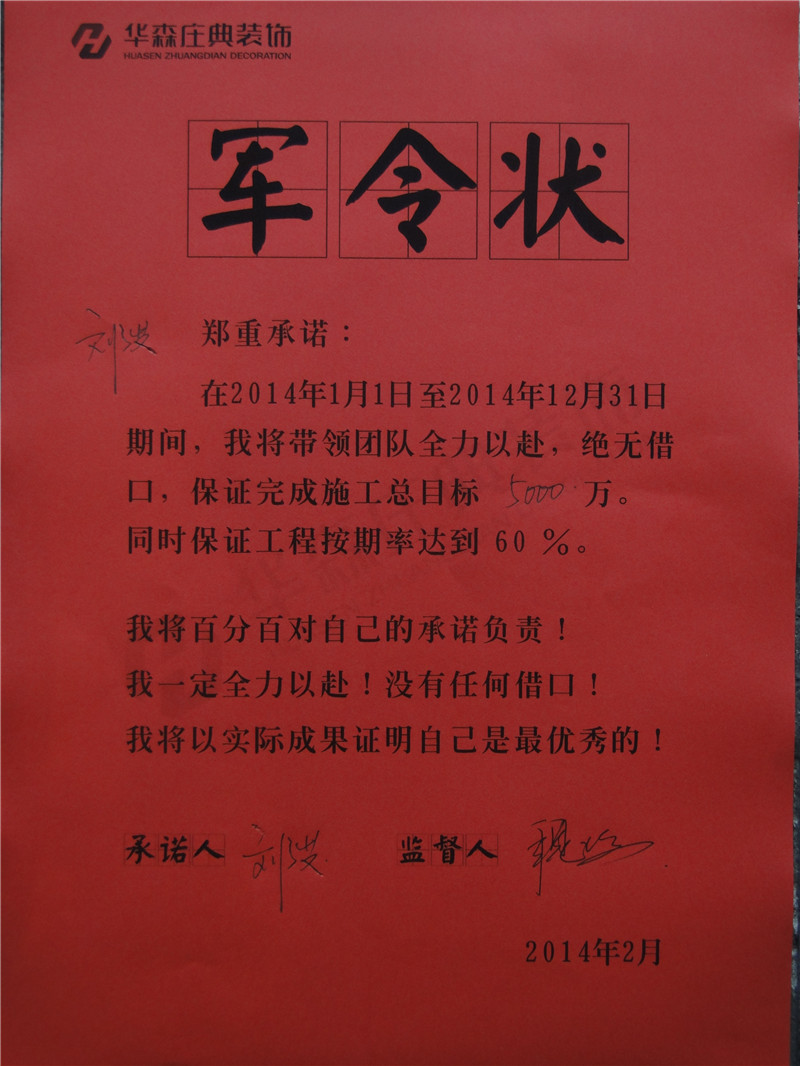 华森庄典装饰
HUASEN ZHUANGDIAN DECORATION
军令状
刘洪 郑重承诺：
在2014年1月1日至2014年12月31日
期间，我将带领团队全力以赴，绝无借
口，保证完成施工总目标 5000 万。
同时保证工程按期率达到 60 %。
我将百分百对自己的承诺负责！
我一定全力以赴！没有任何借口！
我将以实际成果证明自己是最优秀的！
承诺人 刘洪 监督人
2014年2月